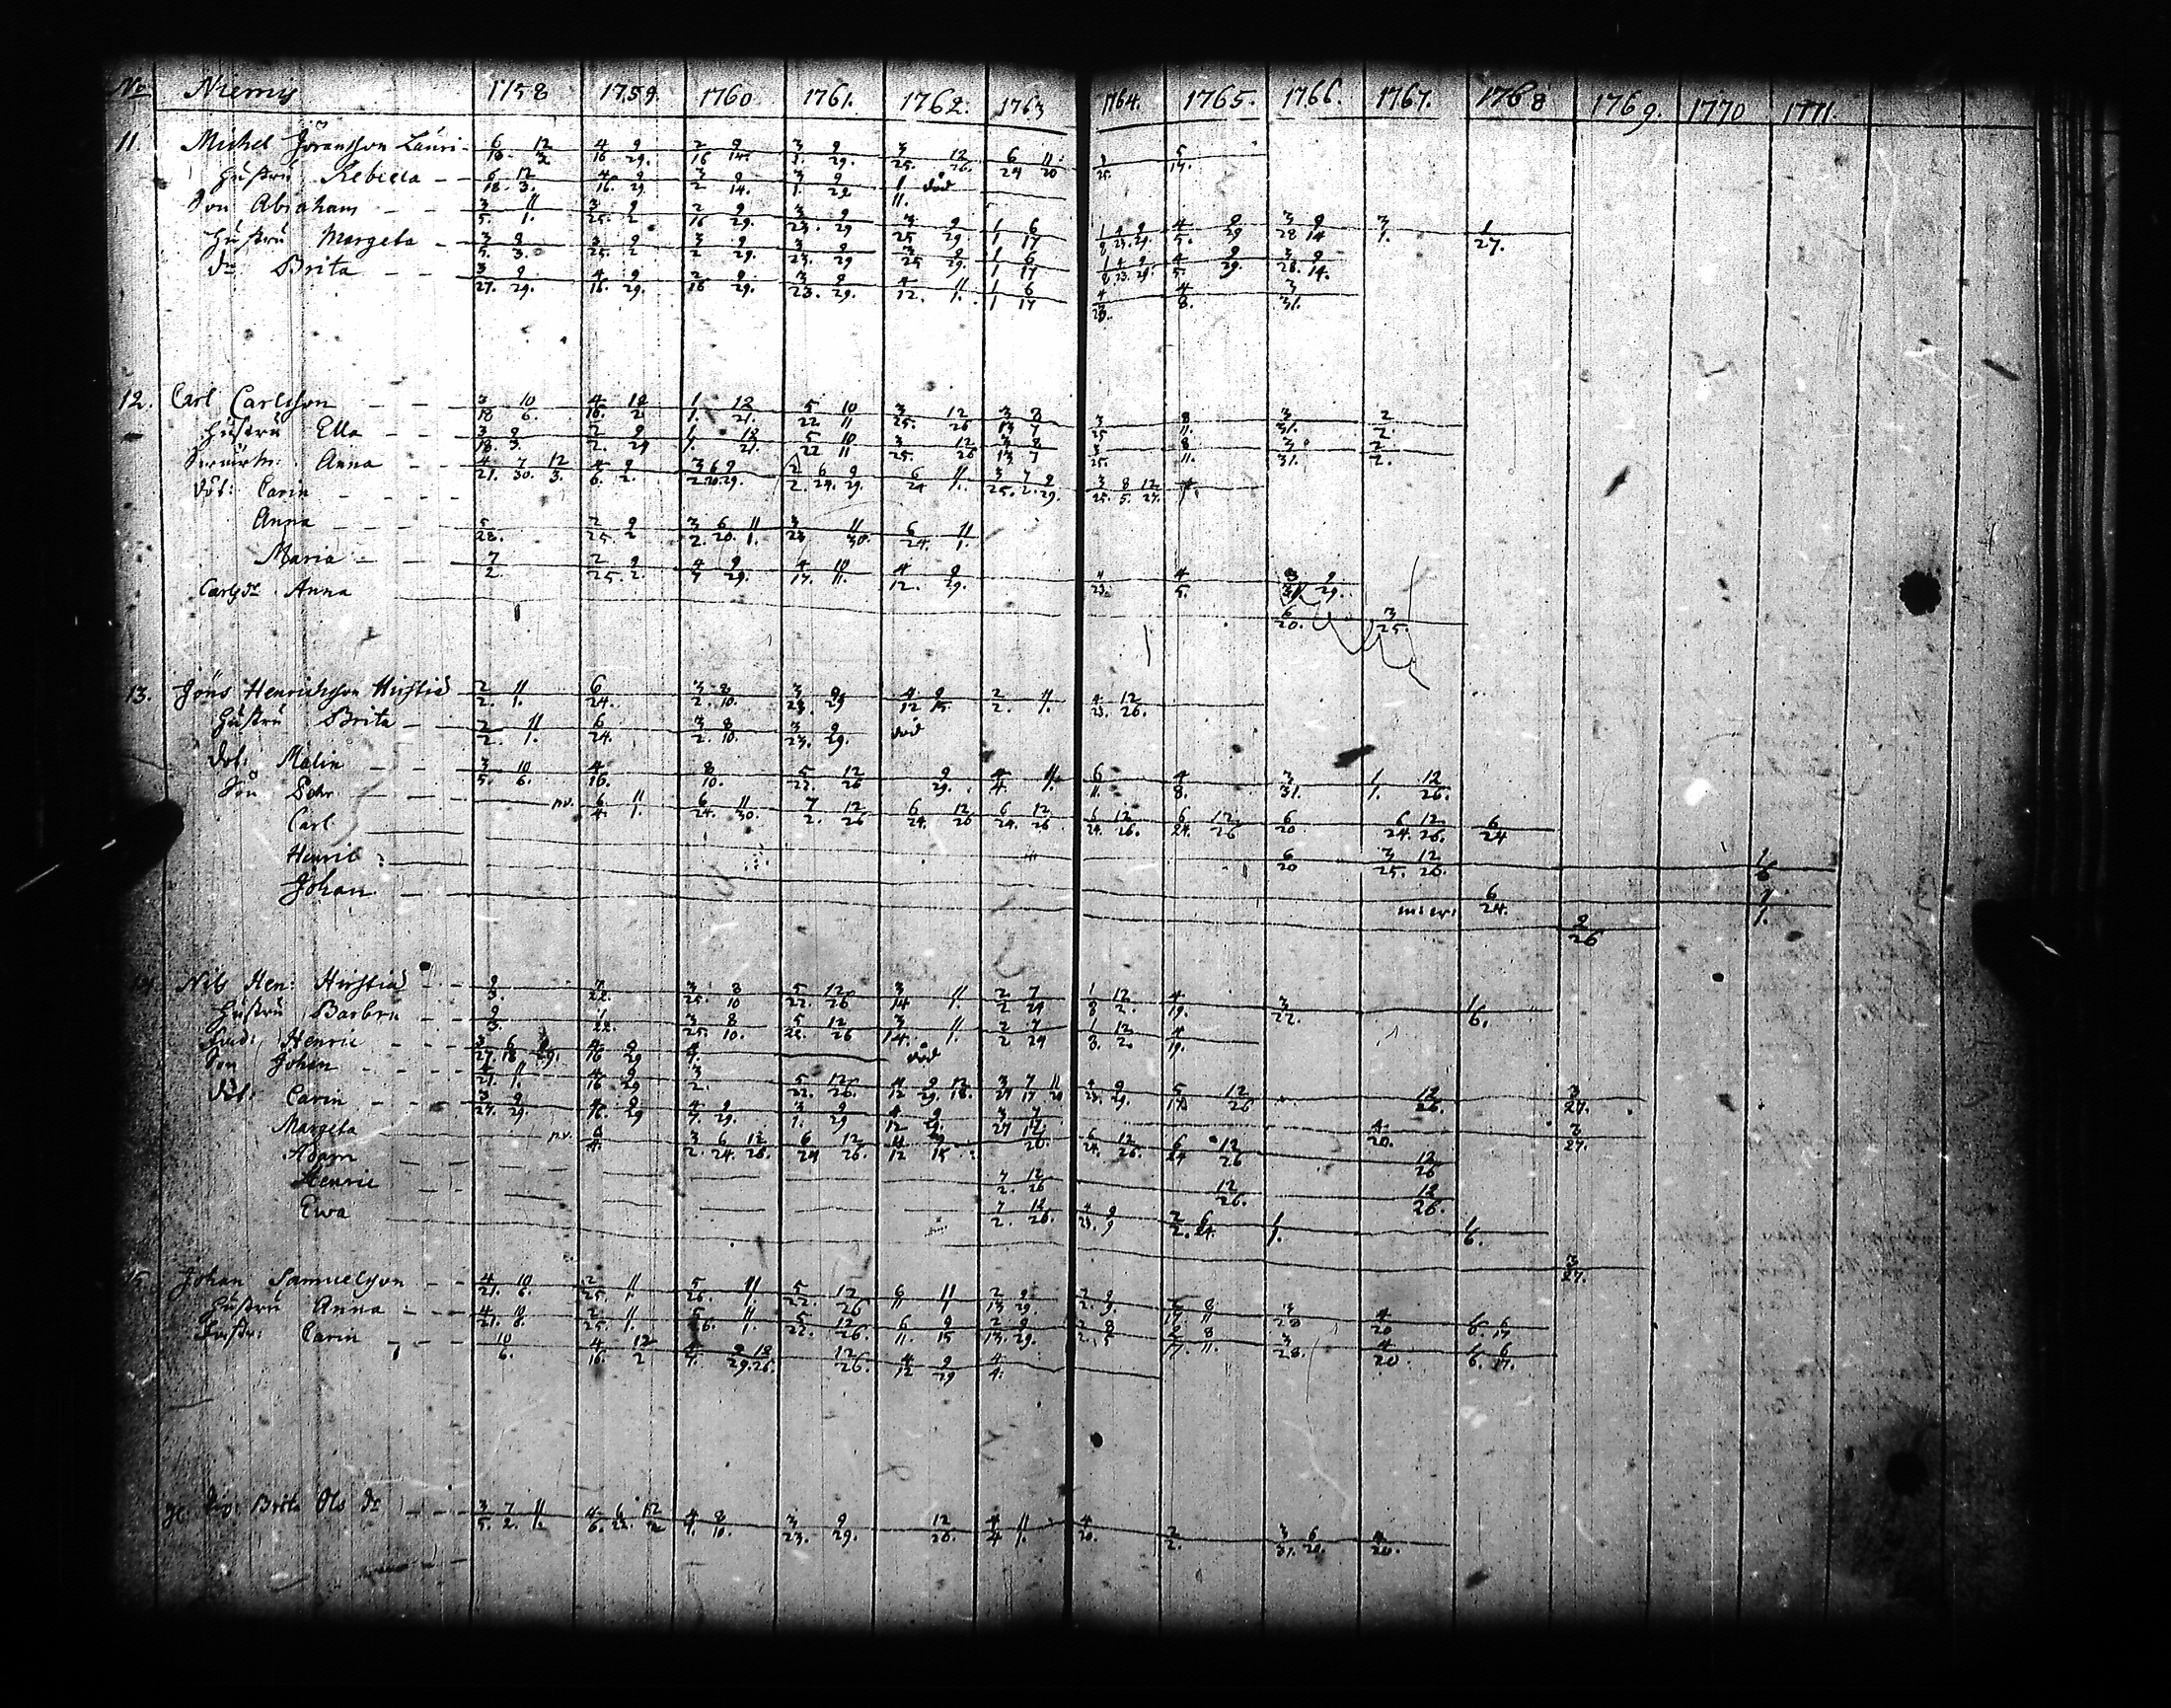 No Niemis 1758 1759. 1760 1761. 1762. 1763 1764. 1765. 1766. 1767. 1768 1769. 1770 1771.
11. Michel Jöransson Lauri 6/18. 12/3 4/16 9/29. 2/16 9/14. 3/1. 9/29. 3/25. 12/26. 6/24 11/20 3/25. 5/14.
Hustru Rebecca 6/18. 12/3. 4/16. 9/29 3/2 9/14. 3/1. 9/29 1/11. död
Son Abraham 3/5. 11/1. 3/25. 9/2 2/16 9/29. 3/23. 9/29 3/25 9/29 1/1 6/17 1/8 4/23. 9/29. 4/5. 9/29 3/28 9/14 3/1. 1/27.
Hustru Margeta 3/5. 9/3. 3/25. 9/2 3/2 9/29. 3/23. 9/29 3/25 9/29. 1/1 6/17 1/8 4/23. 9/29. 4/5. 9/29. 3/28. 9/14.
dr Brita 3/27. 9/29. 4/16. 9/29. 2/16 9/29. 3/23. 9/29. 4/12. 11/1. 1/1 6/17 4/23. 4/8. 3/31.
12. Carl Carlsson 3/18 10/6. 4/16. 12/2 1/1. 12/21. 5/22 10/11 3/25. 12/26 3/13 8/7 3/25 8/11. 3/31. 2/2.
Hustru Ella 3/18. 9/3. 2/2. 9/29 1/1. 12/21. 5/22 10/11 3/25. 12/26 3/13 8/7 3/25. 8/11. 3/31. 2/2.
Anna 4/21. 7/30. 12/3. 4/6. 9/2. 3/2 6/20 9/29. 2/2. 6/24. 9/29. 6/24 11/1. 3/25. 7/2. 9/29. 3/25. 8/5. 12/27.
dot: Carin
Anna 5/28. 2/25. 9/2 3/2. 6/20. 11/1. 3/23 11/30. 6/24. 11/1.
Maria 7/2. 2/25. 9/2. 4/7 9/29. 4/17. 10/11. 4/12. 9/29. 4/23. 4/5. 3/31 9/29.
Carlsdr Anna 6/20. 3/25.
13. Jöns Henrichsson Hirstiö 2/2. 11/1. 6/24. 3/2. 8/10. 3/23. 9/29 4/12 9/15. 2/2. 11/1. 4/23. 12/26.
Hustru Brita 2/2. 11/1. 6/24. 3/2. 8/10. 3/23. 9/29. död
dot: Malin 3/5. 10/6. 4/16. 8/10. 5/22. 12/26 9/29. 4/4. 11/1. 6/11. 4/8. 3/31. 1/1. 12/26.
Son Pehr nv. 6/4. 11/1. 6/24. 11/30. 7/2. 12/26 6/24. 12/26 6/24. 12/26. 6/24. 12/26. 6/24. 12/26 6/20 6/24. 12/26. 6/24
Carl 6/20 3/25. 12/26. 1/6
Henric 6/24. 1/1.
Johan 2/26
Nils Hen: Hirstiö 9/3. 7/22. 3/25. 8/10 5/22. 12/26 3/14 11/1. 2/2 7/29 1/8 12/2. 4/19. 3/22. 1/6.
Hustru Barbru 9/3. 7/22. 3/25. 8/10. 5/22. 12/26 3/14. 11/1. 2/2 7/29 1/8. 12/2. 4/19.
Henric 3/27. 6/18 9/29. 4/16 9/29 4/7. död
Son Johan 4/21. 11/1. 4/16 9/29 3/2. 5/22. 12/26. 4/12 9/29. 12/18. 3/27 7/17 11/20 4/23. 9/29. 5/17. 12/26 12/26. 3/27.
dot: Carin 3/27. 9/29. 4/16. 9/29 4/7. 9/29. 3/1. 9/29 4/12 9/29. 3/27 7/17. 4/20. 3/27.
Margeta nv. 6/4. 3/2. 6/24. 12/26. 6/24 12/26. 4/12 9/15 12/26. 6/24. 12/26. 6/24 12/26 12/26
Adam 7/2. 12/26 12/26. 12/26.
Henric 7/2. 12/26. 4/23. 9/9 2/2. 6/24. 1/1. 1/6.
Ewa 3/27.
15. Johan Samuelsson 4/21. 10/6. 2/25. 11/1. 5/26. 11/1. 5/22. 12/26 6/11 11/1 2/13 9/29. 2/2. 9/9. 2/17. 8/11 3/28 4/20 1/6. 6/17
Hustru Anna 4/21. 10/8. 2/25. 11/1. 5/26. 11/1. 5/22. 12/26. 6/11. 9/15 2/13. 9/29. 2/2. 8/5 2/17 8/11. 3/28. 4/20. 1/6. 6/17.
Carin 10/6. 4/16. 12/2 4/7. 9/29. 12/26. 12/26. 4/12 9/29 4/4.
Brita Ols dr 3/5. 7/2. 11/1. 4/6. 6/22. 12/2 4/7. 8/10. 3/23. 9/29. 12/26. 4/4 11/1. 4/20. 2/2. 3/31. 6/20. 4/20.